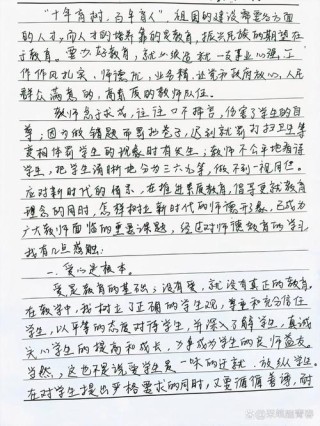 "十年育树,百年育人",祖国的建设需要各方面
的人才,而人才的培养靠的是教育,振兴民族的期望在
于教育。要办好教育,就必须造就一支事业心强、工
作作风扎实、师德优、业务精、让党和政府放心、人民
群众满意的、高素质的教师队伍。
教师急于求成,往往口不择言,伤害了学生的自
尊;因少做错题而要抄卷子、迟到就要打扫卫生等
变相体罚学生的现象时有发生;教师不公平地看待
学生,把学生清晰地分为三六九等,做不到一视同仁。
应对新时代的情景,在推进素质教育,倡导更新教育
理念的同时,怎样树立新时代的师德形象,已成为
广大教师面临的重要课题,经过对师德教育的学习,
我有几点感触:
一、爱心是根本。
爱是教育的基础,没有爱,就没有真正的教育。
在教学中,我树立了正确的学生观,尊重和充分信任
学生,以平等的态度对待学生,并深入了解学生,真诚
关心学生的提高和成长,力争成为学生的良师益友。
当然,这也不是说爱学生是一味的迁就、放纵学生。
在对学生提出严格要求的同时,又要循循善诱,耐